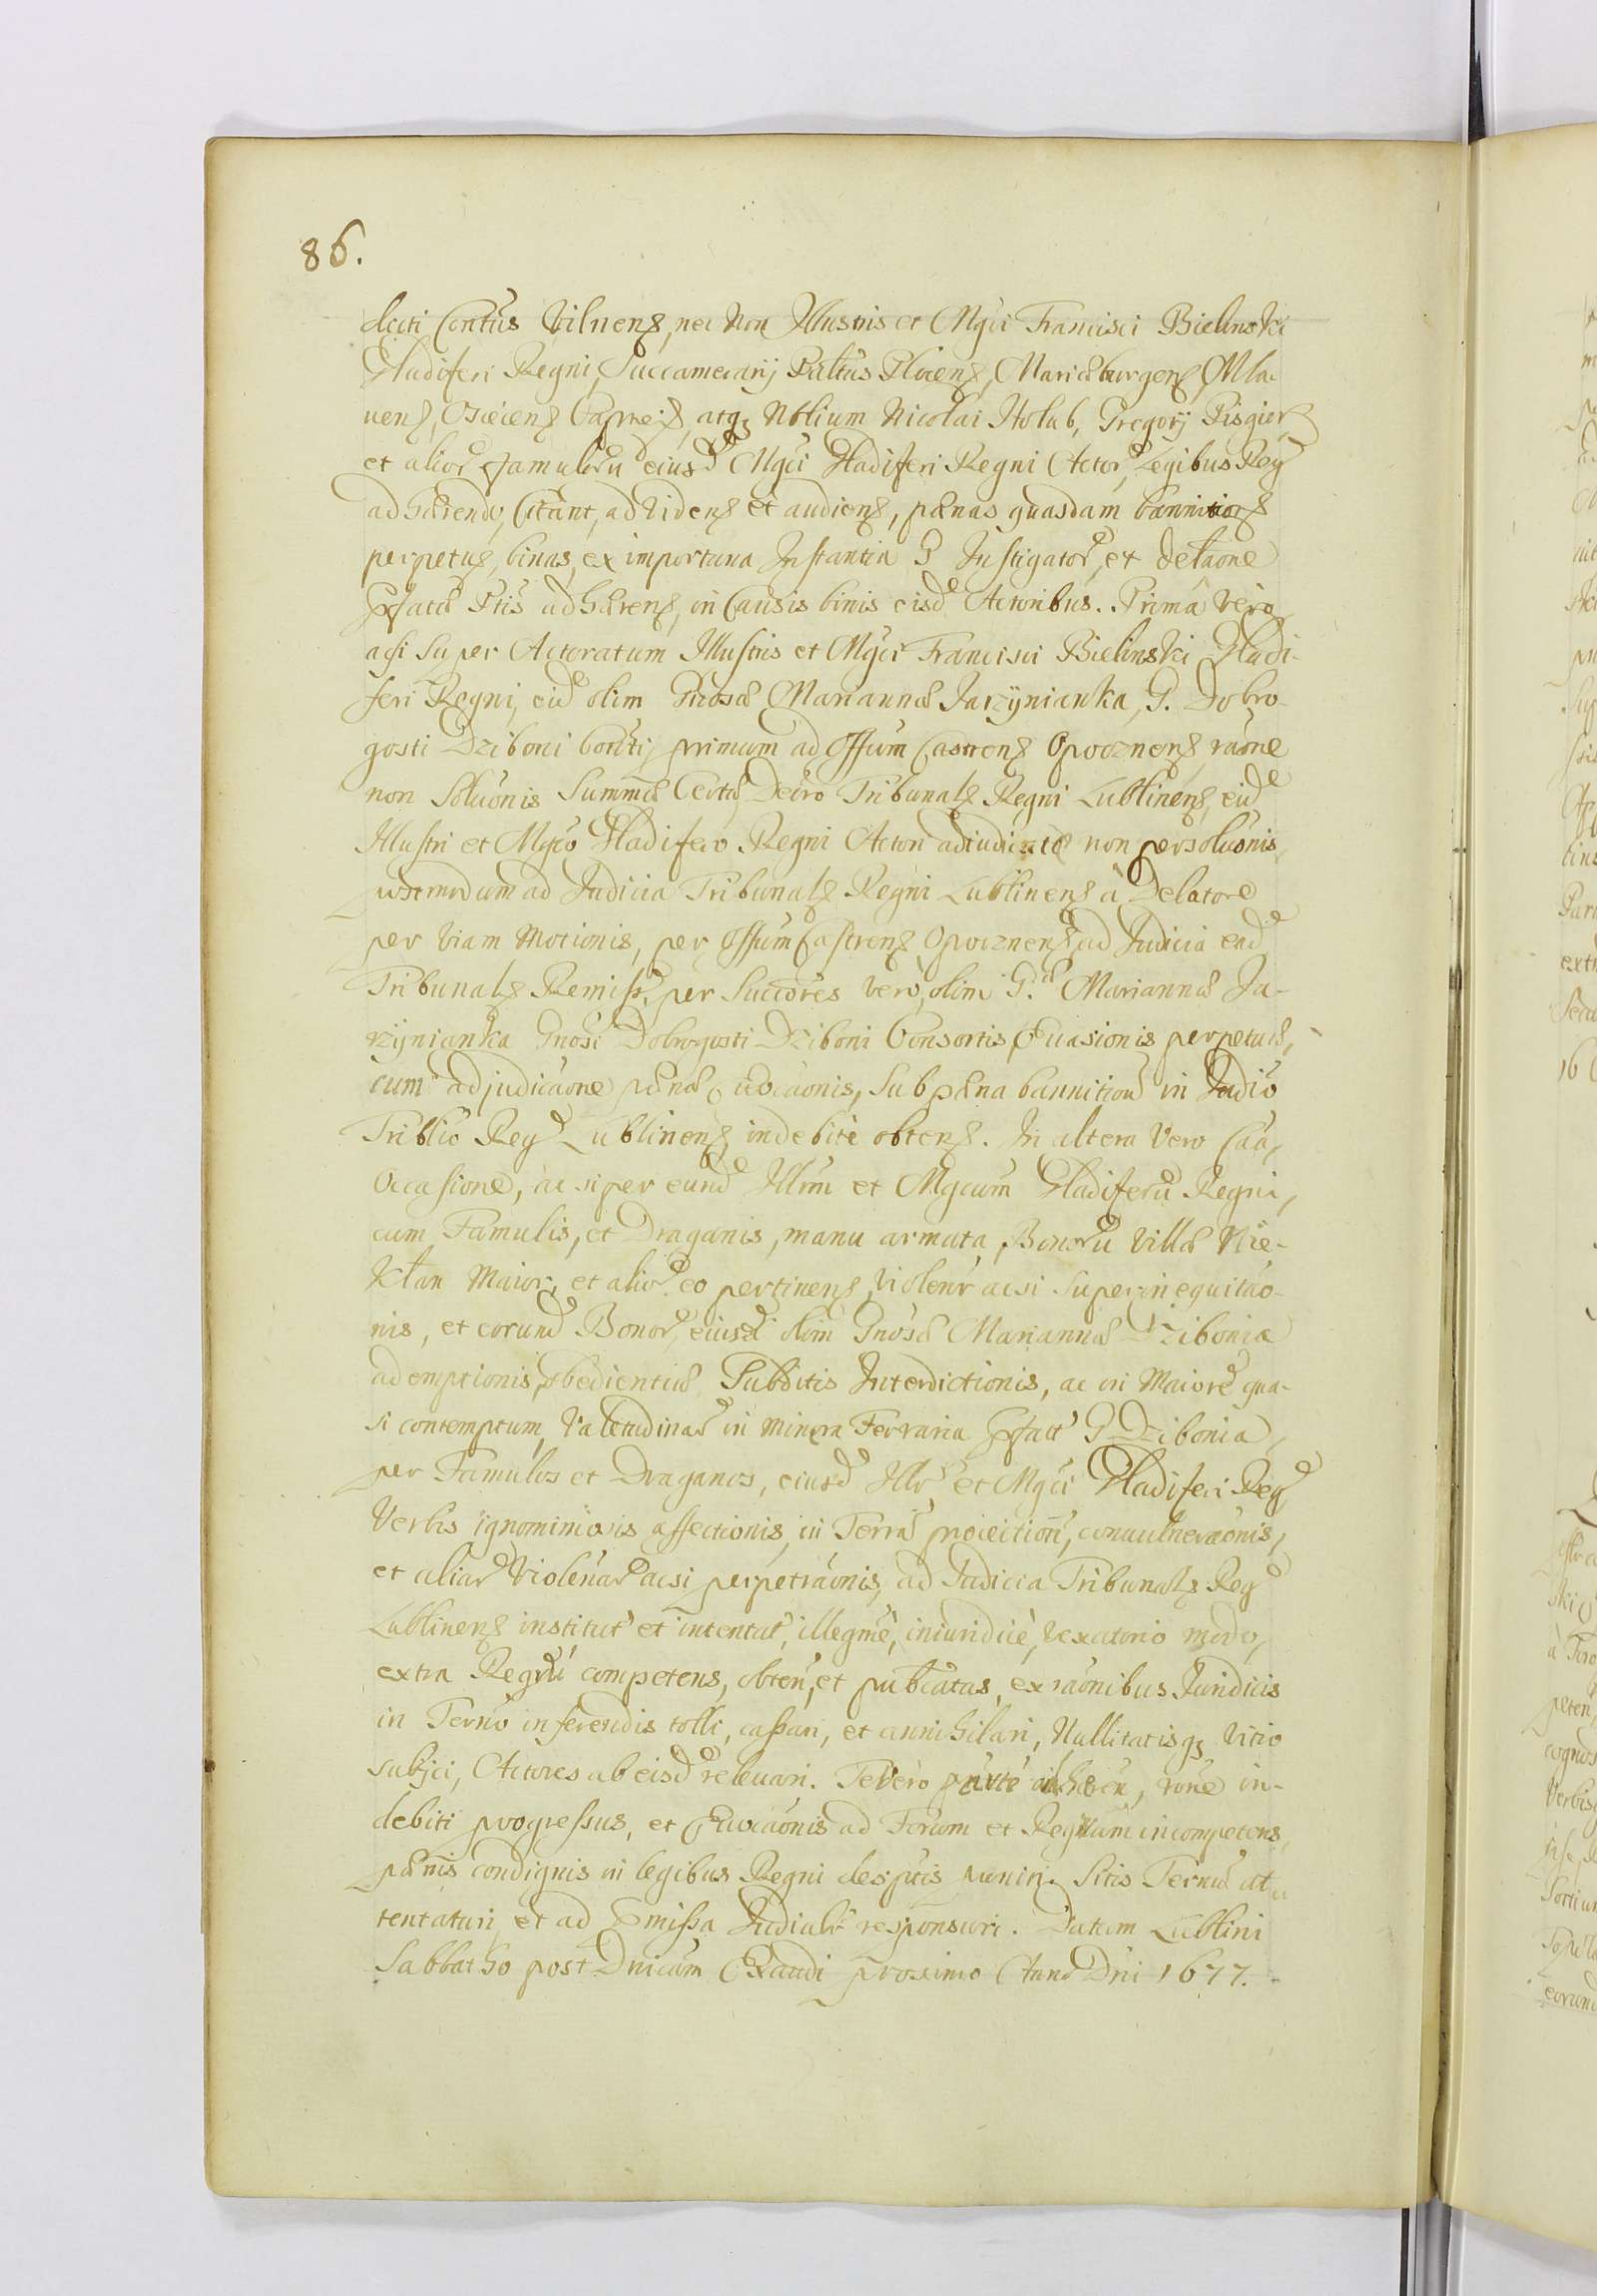 86.
dicti Contus Vilnens, nec Non Illustris et Mgci Francisci Bielinski
Gladiferi Regni, Succamerarij Paltus Plocens, Mariæburgens, Mla
uens, Osiecens Capnei, atq Nblium Nicolai Holub, Gregorij Pisgier
et alior Famuloru eiusd Mgci Gladiferi Regni Actor, Legibus Reg
adhærendo, Citant, ad Videns et audiens, pænas quasdam bannitions
perpetuæ, binas, ex importuna Instantia G Instigator, et delaone
Præfatæ Ptis adhærens, in Causis binis eisd Actoribus. Primâ Vero
acsi Super Actoratum Illustris et Mgci Francisci Bielinski Gladi-
feri Regni, eid olim Gnosæ Mariannæ Jarzynianka, G. Dobro-
gosti Dziboni Consti, primum ad Offum Castrens Opocznens raone
non Soluonis Summæ Certæ Decro Tribunals Regni Lublinens, eid
Illustri et Mgco Gladifero Regni Actori adiudicatæ non persoluonis,
postmodum ad Judicia Tribunals Regni Lublinens à Delatore
per Viam Motionis, per Offum Castrens Opocznens ad Judicia ead
Tribunals Remiss, per Succores Vero, olim G. Mariannæ Ja-
rzynianka Gnosi Dobrogosti Dziboni Consortis, Euasionis perpetuæ,
cum adjudicaone pænæ euocaonis, Sub pæna bannition in Judio
Triblio Reg Lublinens indebitè obtens. In altera Vero Caa,
Occasione, ac si per eund Illrm et Mgcum Gladiferu Regni,
cum Famulis, et Draganis, manu armata, Bonoru Villæ Nie-
kłan Maior, et alior eo pertinens, Violenr acsi Superinequitao-
nis, et eorund Bonor, eiusd olim Gnosæ Mariannæ Dziboniæ
ademptionis, obedientiæ Subditis Interdictionis, ac in Maiore qua-
si contemptum, Valetudinar in minera Ferraria Præfatt G Dzibonia,
per Famulos et Draganos, eiusd Illr et Mgci Gladiferi Reg
Verbis ignominiosis affectionis, in Terrã proiection, conuulneraonis,
et aliar Violenar acsi perpetraonis, ad Judicia Tribunals Reg
Lublinens institut et intentat, illegmè, iniuridicè, Vexatorio modo,
extra Regru competens, obten, et publcatas, ex raonibus Juridicis
in Terno inferendis tolli, cassari, et annihilari, Nullitatisq Vitio
subjci, Actores ab eisd releuari. Te Vero parte adhæren, raone in-
debiti progressus, et Euocaonis ad Forum et Regrum incompetens,
pænis condignis in legibus Regni desptis puniri. Sitis Ternu at
tentaturi, et ad Præmissa Judialr responsuri. Datum Lublini
Sabbatho post Dnicam Exaudi proximo Anno Dni 1677.